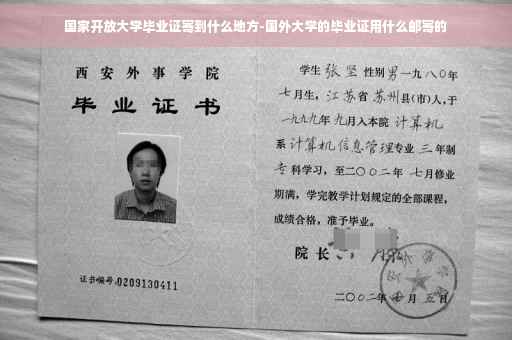 国家开放大学毕业证写到什么地方-国外大学的毕业证用什么邮写的
西安外事学院
毕业证书
证书编号:0209130411
学生 张坚 性别男一九八〇年
七月生,江苏省苏州县(市)人,于
一九九九年九月入本院 计算机
系计算机信息管理专业 三 年制
专科学习,至二〇〇二年 七月修业
期满,学完教学计划规定的全部课程,
成绩合格,准予毕业。
院长
二〇〇二年 月 五日